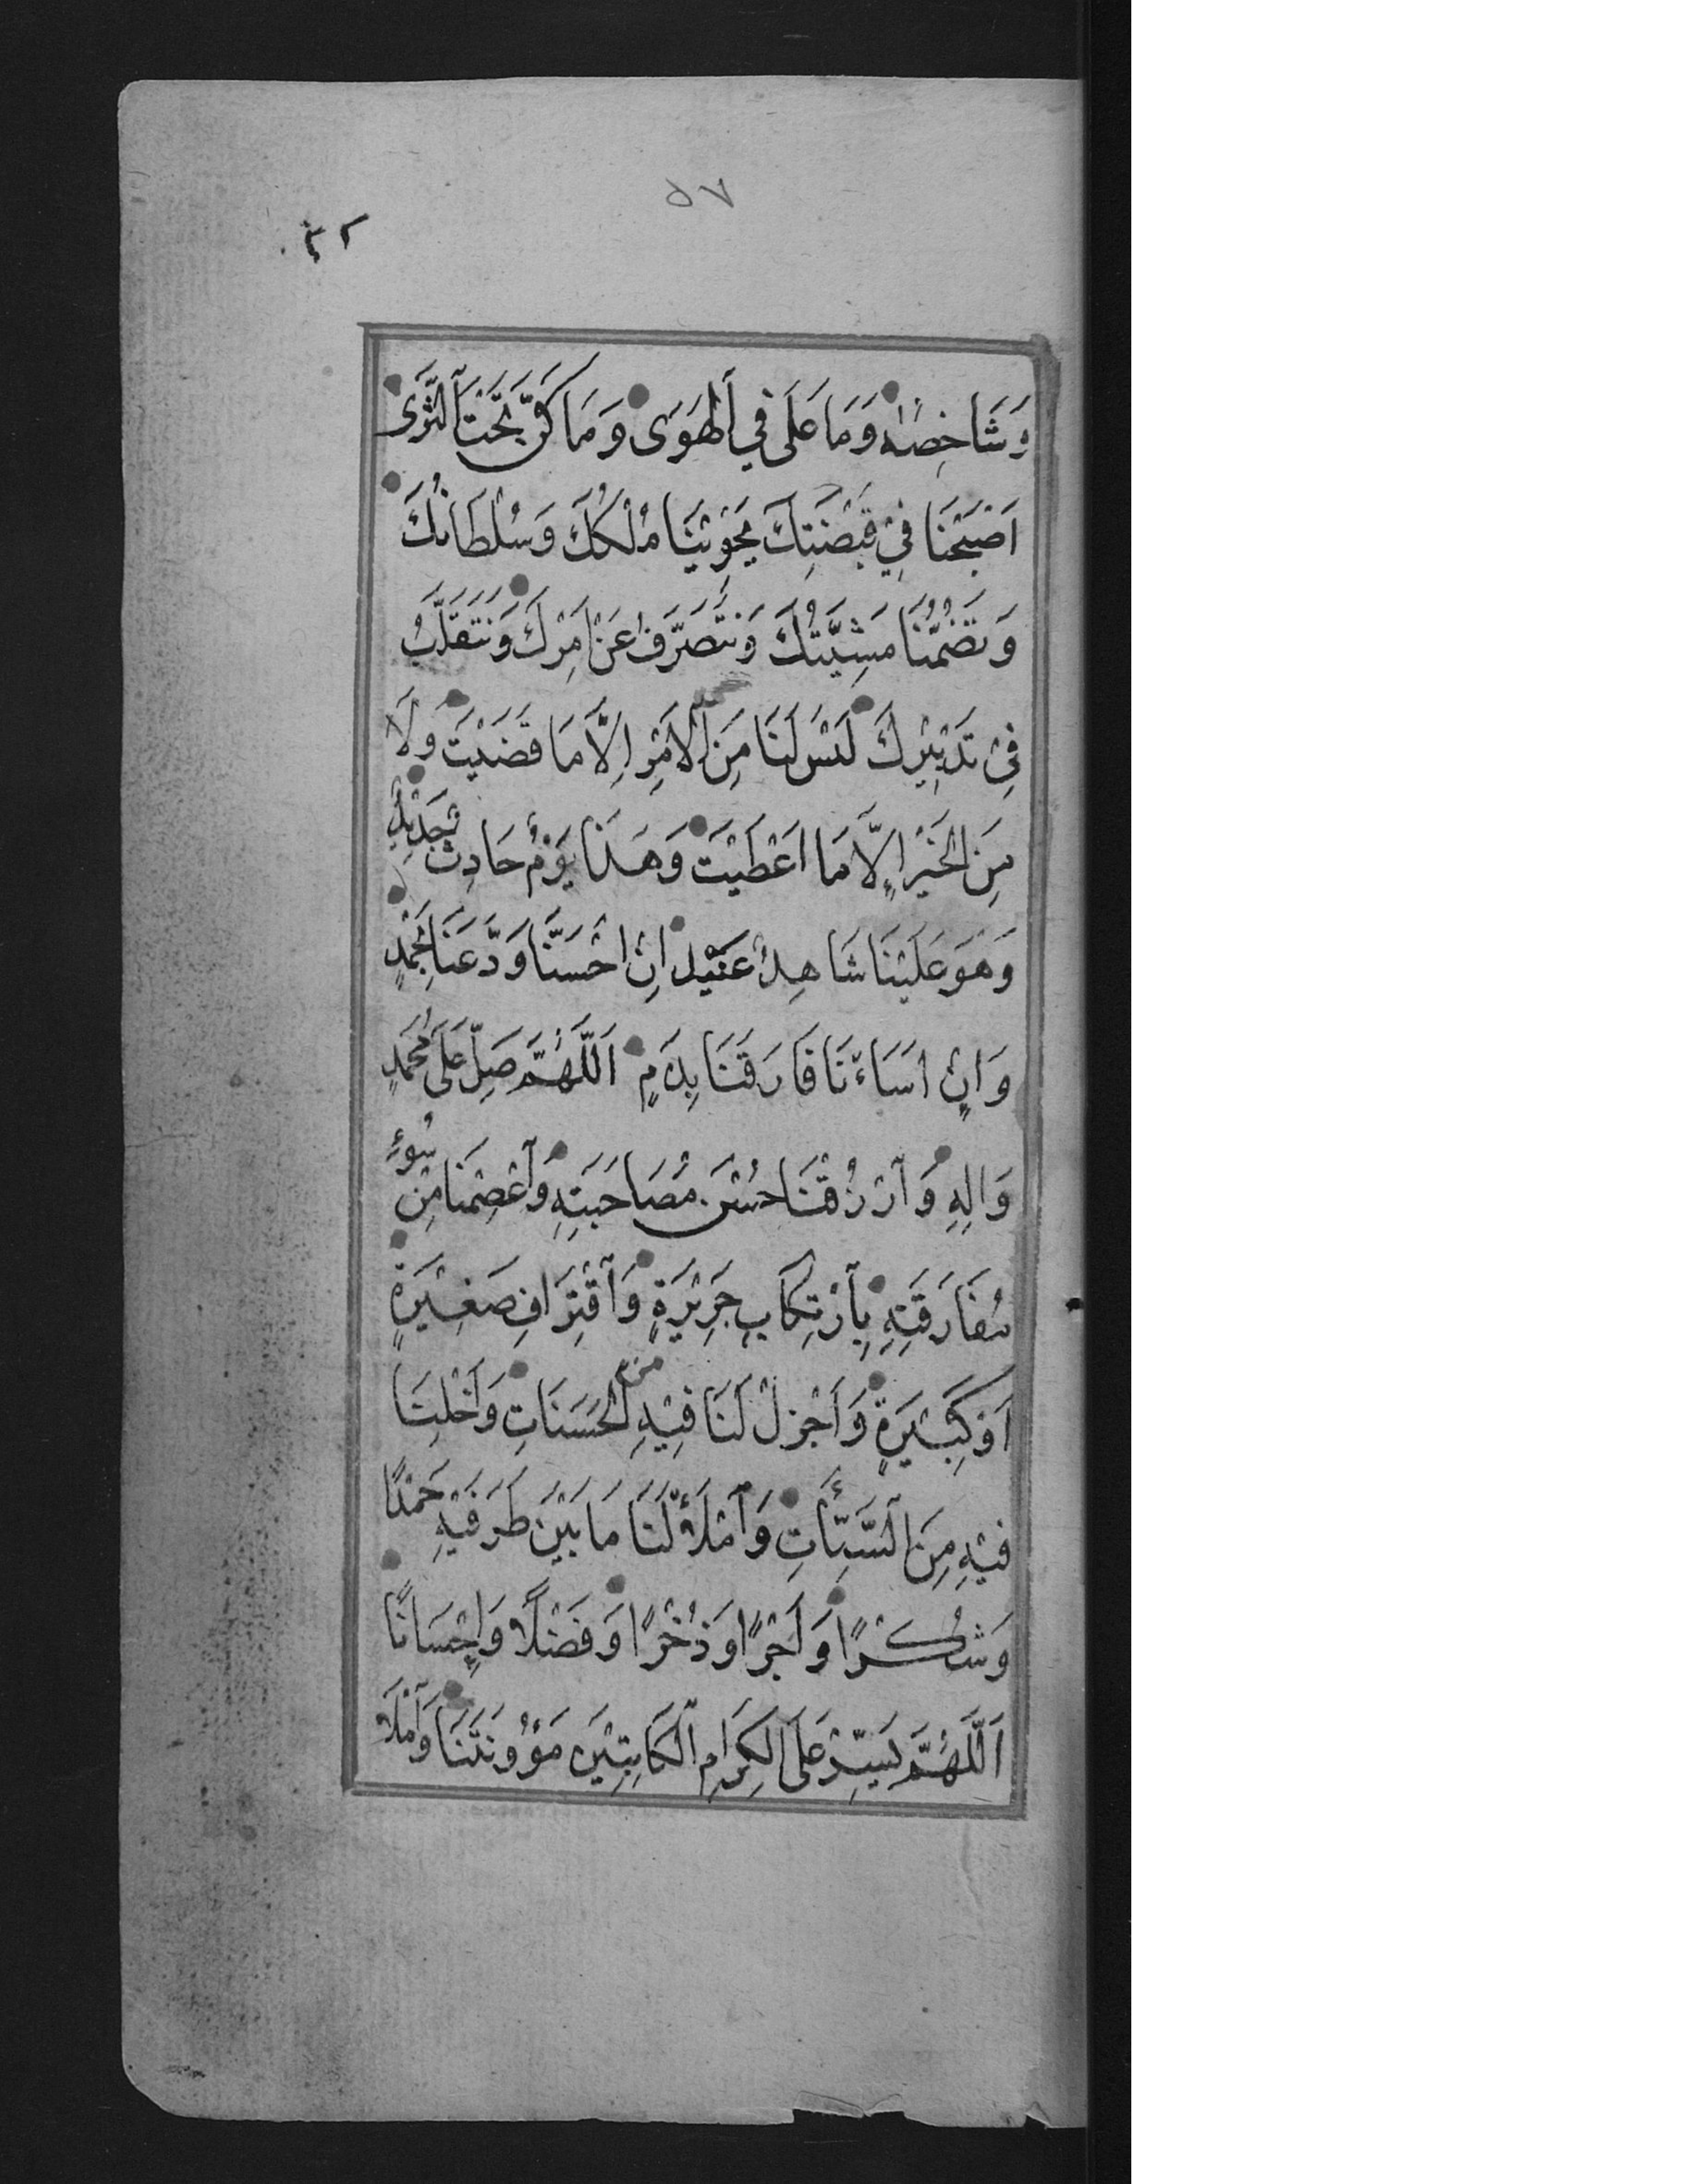 ٥٧
٤٢
وَشَاخِصُهُ وَمَا عَلَى فِي الْهَوَى وَمَا كَنَّ تَحْتَ الثَّرَى
اَصْبَحْنَا فِيْ قَبْضَتِكَ يَحْوِيْنَا مُلْكُكَ وَسُلْطَانُكَ
وَتَضُمُّنَا مَشِيَّتُكَ وَنَتَصَرَّفُ عَنْ اَمْرِكَ وَنَتَقَلَّبُ
فِيْ تَدْبِيْرِكَ لَيْسَ لَنَا مِنَ الْاَمْرِ اِلَّا مَا قَضَيْتَ وَلَا
مِنَ الْخَيْرِ اِلَّا مَا اَعْطَيْتَ وَهَذَا يَوْمٌ حَادِثٌ جَدِيْدٌ
وَهُوَ عَلَيْنَا شَاهِدٌ عَتِيْدٌ اِنْ اَحْسَنَّا وَدَّعَنَا بِحَمْدٍ
وَاِنْ اَسَاْءنَا فَارَقَنَا بِذَمٍ اَللّٰهُمَّ صَلِّ عَلَى مُحَمَّدٍ
وَاٰلِهِ وَارْزُقْنَا حُسْنَ مُصَاحَبَتِهِ وَاعْصِمْنَا مِنْ سُوْءِ
مُفَارَقَتِهِ بِارْتِكَابِ جَرِيْرَةٍ وَاقْتِرَافِ صَغِيْرَةٍ
اَوْ كَبِيْرَةٍ وَاَجْزِلْ لَنَا فِيْهِ مِنَ الْحَسَنَاتِ وَاَخْلِنَا
فِيْهِ مِنَ السَّيِّئَاتِ وَامْلَأْ لَنَا مَا بَيْنَ طَرَفَيْهِ حَمْدًا
وَشُكْرًا وَاَجْرًا وَذُخْرًا وَفَضْلًا وَاِحْسَانًا
اَللّٰهُمَّ يَسِّرْ عَلَى الْكِرَامِ الْكَاتِبِيْنَ مَؤُوْنَتَنَا وَامْلَا